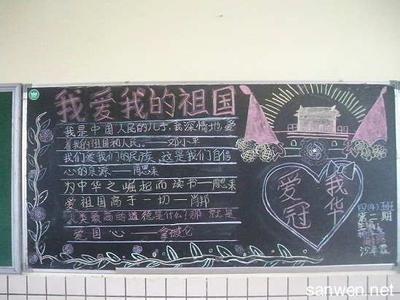 我爱我的祖国
我是中国人民的儿子,我深情地爱
着我的祖国和人民。——邓小平
我们爱我们的民族,这是我们自信
心的泉源——周恩来
为中华之崛起而读书——周恩来
爱祖国高于一切——肖邦
人类最高的道德是什么?那就是
爱国心——拿破仑
爱我
冠华
四(4)班
第二期
sanwen.net